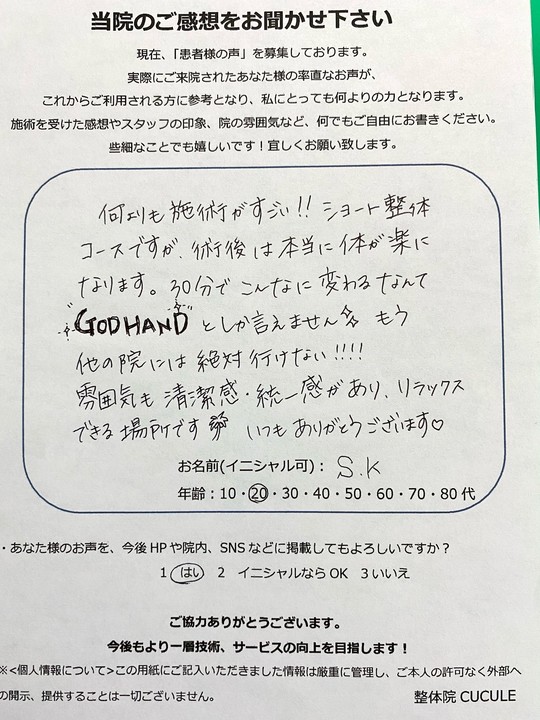 当院のご感想をお聞かせ下さい
現在、「患者様の声」を募集しております。
実際にご来院されたあなた様の率直なお声が、
これからご利用される方に参考となり、私にとっても何よりの力となります。
施術を受けた感想やスタッフの印象、院の雰囲気など、何でもご自由にお書きください。
些細なことでも嬉しいです！宜しくお願い致します。
何よりも施術がすごい!! ショート整体
コースですが、術後は本当に体が楽に
なります。30分でこんなに変わるなんて
"GODHAND"としか言えません もう
他の院には絶対行けない!!!!
雰囲気も清潔感・統一感があり、リラックス
できる場所です いつもありがとうございます♡
お名前(イニシャル可)： S.K
年齢：10・20・30・40・50・60・70・80 代
・あなた様のお声を、今後 HP や院内、SNS などに掲載してもよろしいですか？
1 はい 2 イニシャルなら OK 3 いいえ
ご協力ありがとうございます。
今後もより一層技術、サービスの向上を目指します！
※<個人情報について>この用紙にご記入いただきました情報は厳重に管理し、ご本人の許可なく外部へ
の開示、提供することは一切ございません。
整体院 CUCULE